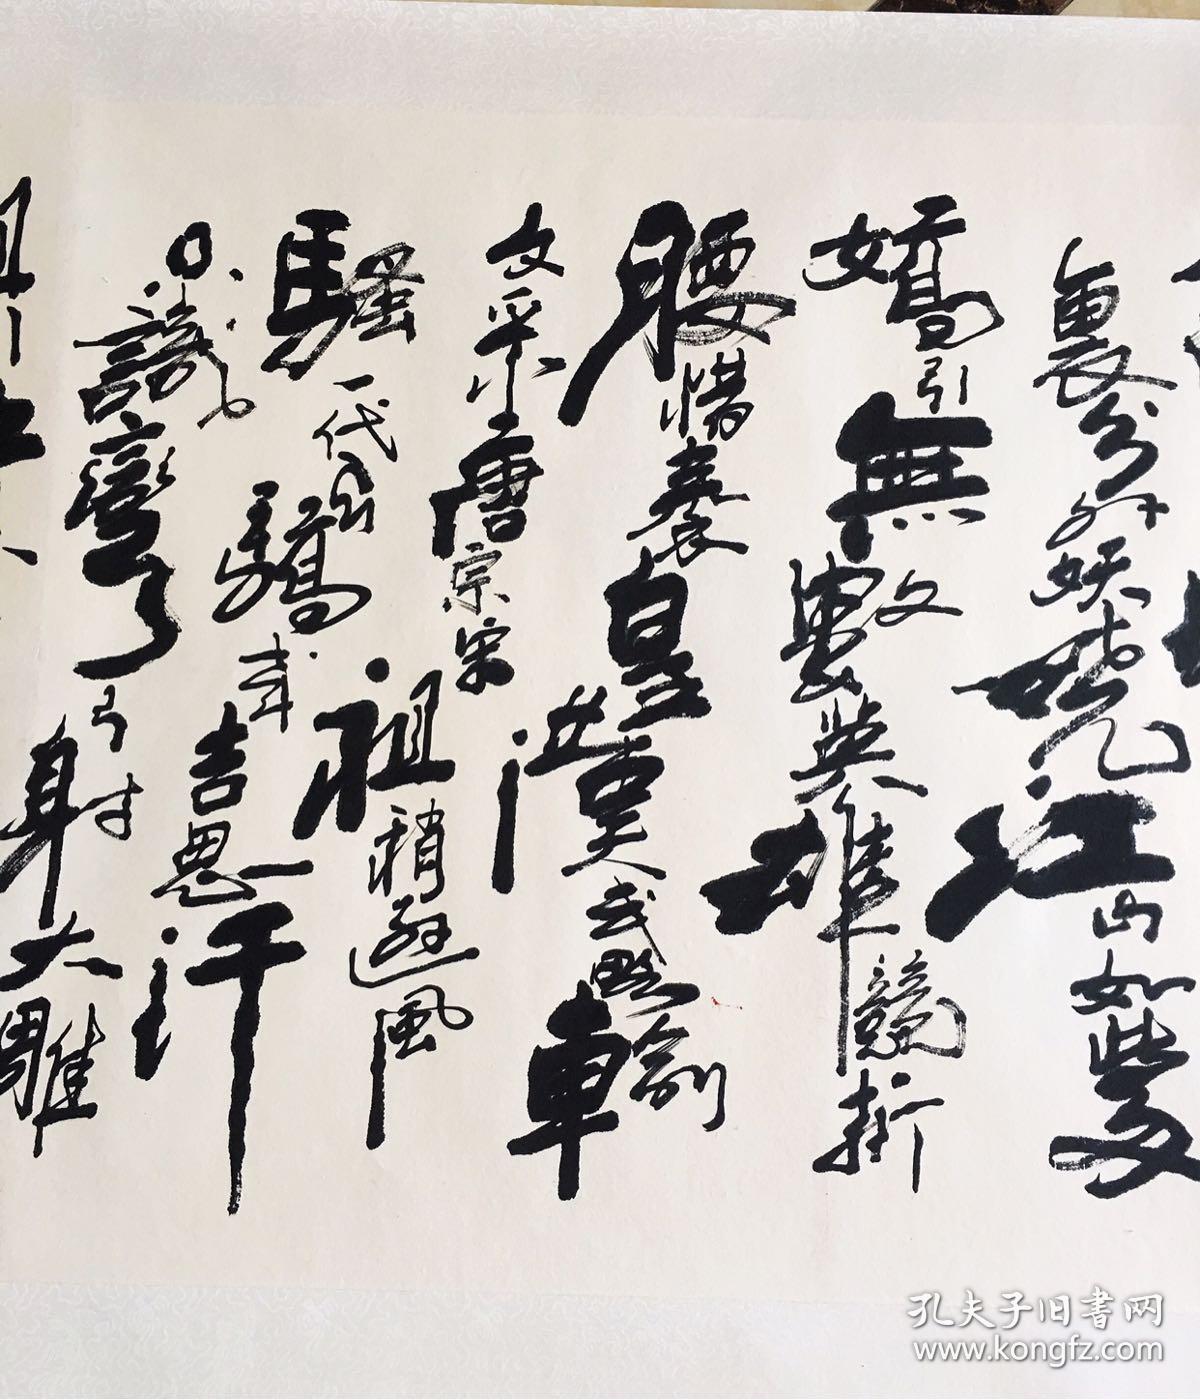 裹分外妖嬈江山如此多
嬌引無數英雄競折
腰惜秦皇漢武略輸
文采唐宗宋祖稍遜風
騷一代天驕成吉思汗
只識彎弓射大雕
孔夫子旧书网
www.kongfz.com